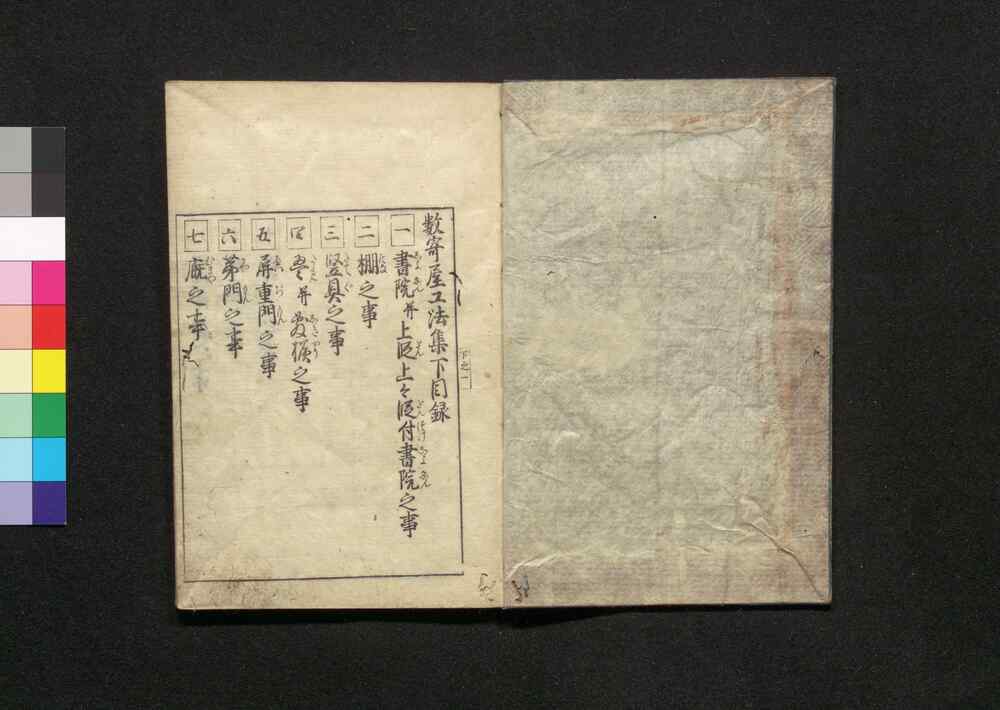 数寄屋工法集下目録
一 書院并上段上々段付書院之事
二 棚之事
三 竪具之事
四 并 之事
五 屏重門之事
六 茅門之事
七 廐之事
下之一